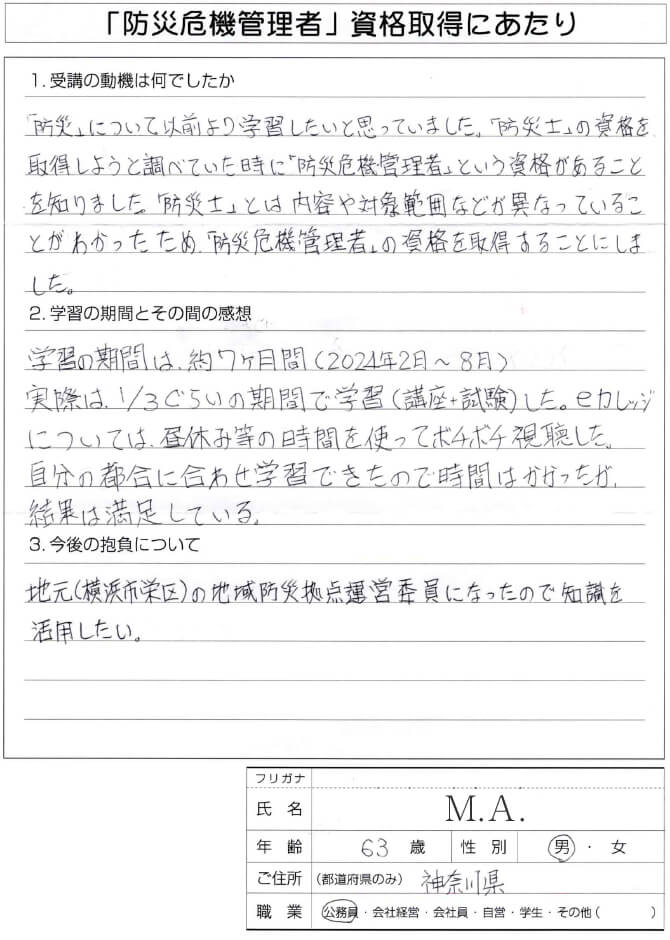 「防災危機管理者」資格取得にあたり
1. 受講の動機は何でしたか
「防災」について以前より学習したいと思っていました。「防災士」の資格を
取得しようと調べていた時に「防災危機管理者」という資格があること
を知りました。「防災士」とは内容や対象範囲などが異なっているこ
とがわかったため、「防災危機管理者」の資格を取得することにしま
した。
2. 学習の期間とその間の感想
学習の期間は、約7ヶ月間(2024年2月~8月)
実際は、1/3ぐらいの期間で学習(講座+試験)した。eカレッジ
については、昼休み等の時間を使ってボチボチ視聴した。
自分の都合に合わせ学習できたので時間はかかったが、
結果は満足している。
3. 今後の抱負について
地元(横浜市栄区)の地域防災拠点運営委員になったので知識を
活用したい。
フリガナ
氏名 M.A.
年齢 63 歳 性別 男・女
ご住所 (都道府県のみ) 神奈川県
職業 公務員・会社経営・会社員・自営・学生・その他( )